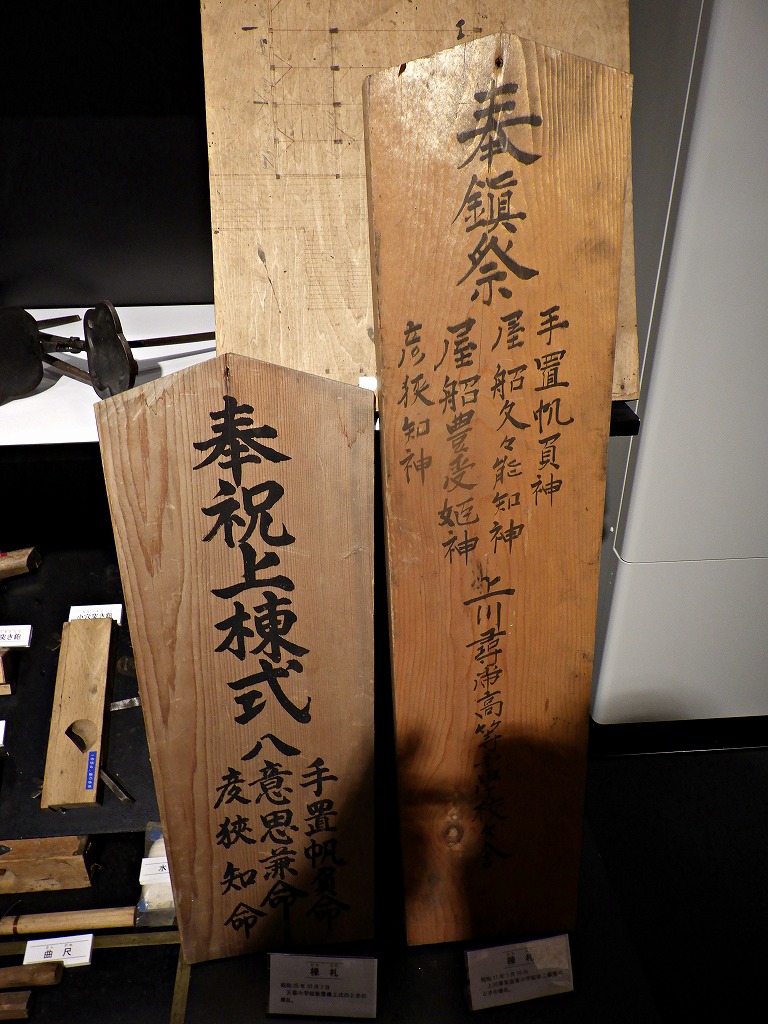 奉鎮祭
手置帆負神
屋船久々能知神
屋船豊受姫神
彦狭知神
上川尋常高等小学校々舎
奉祝上棟式
手置帆負命
八意思兼命
彦狭知命
棟札
棟札
曲尺